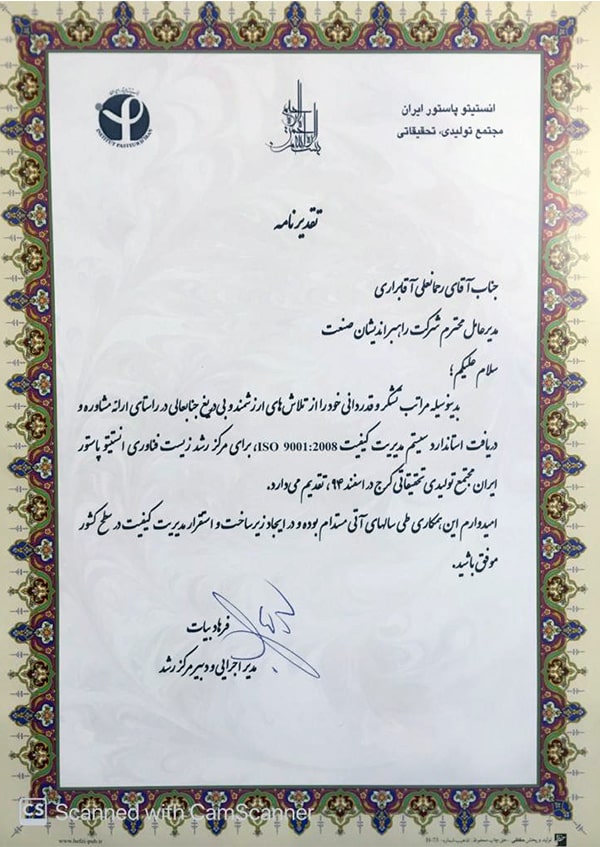 انستیتو پاستور ایران
مجتمع تولیدی، تحقیقاتی
INSTITUT PASTEUR D'IRAN
تقدیرنامه
جناب آقای رحمانعلی آقابراری
مدیرعامل محترم شرکت راهبر اندیشان صنعت
سلام علیکم؛
بدینوسیله مراتب تشکر و قدردانی خود را از تلاش های ارزشمند و بی دریغ جنابعالی در راستای ارائه مشاوره و
دریافت استاندارد سیستم مدیریت کیفیت ISO 9001:2008، برای مرکز رشد زیست فناوری انستیتو پاستور
ایران مجتمع تولیدی تحقیقاتی کرج در اسفند ۹۴، تقدیم می‌دارد.
امیدوارم این همکاری طی سالهای آتی مستدام بوده و در ایجاد زیرساخت و استقرار مدیریت کیفیت در سطح کشور
موفق باشید.
فرهاد بیات
مدیر اجرایی و دبیر مرکز رشد
CS Scanned with CamScanner